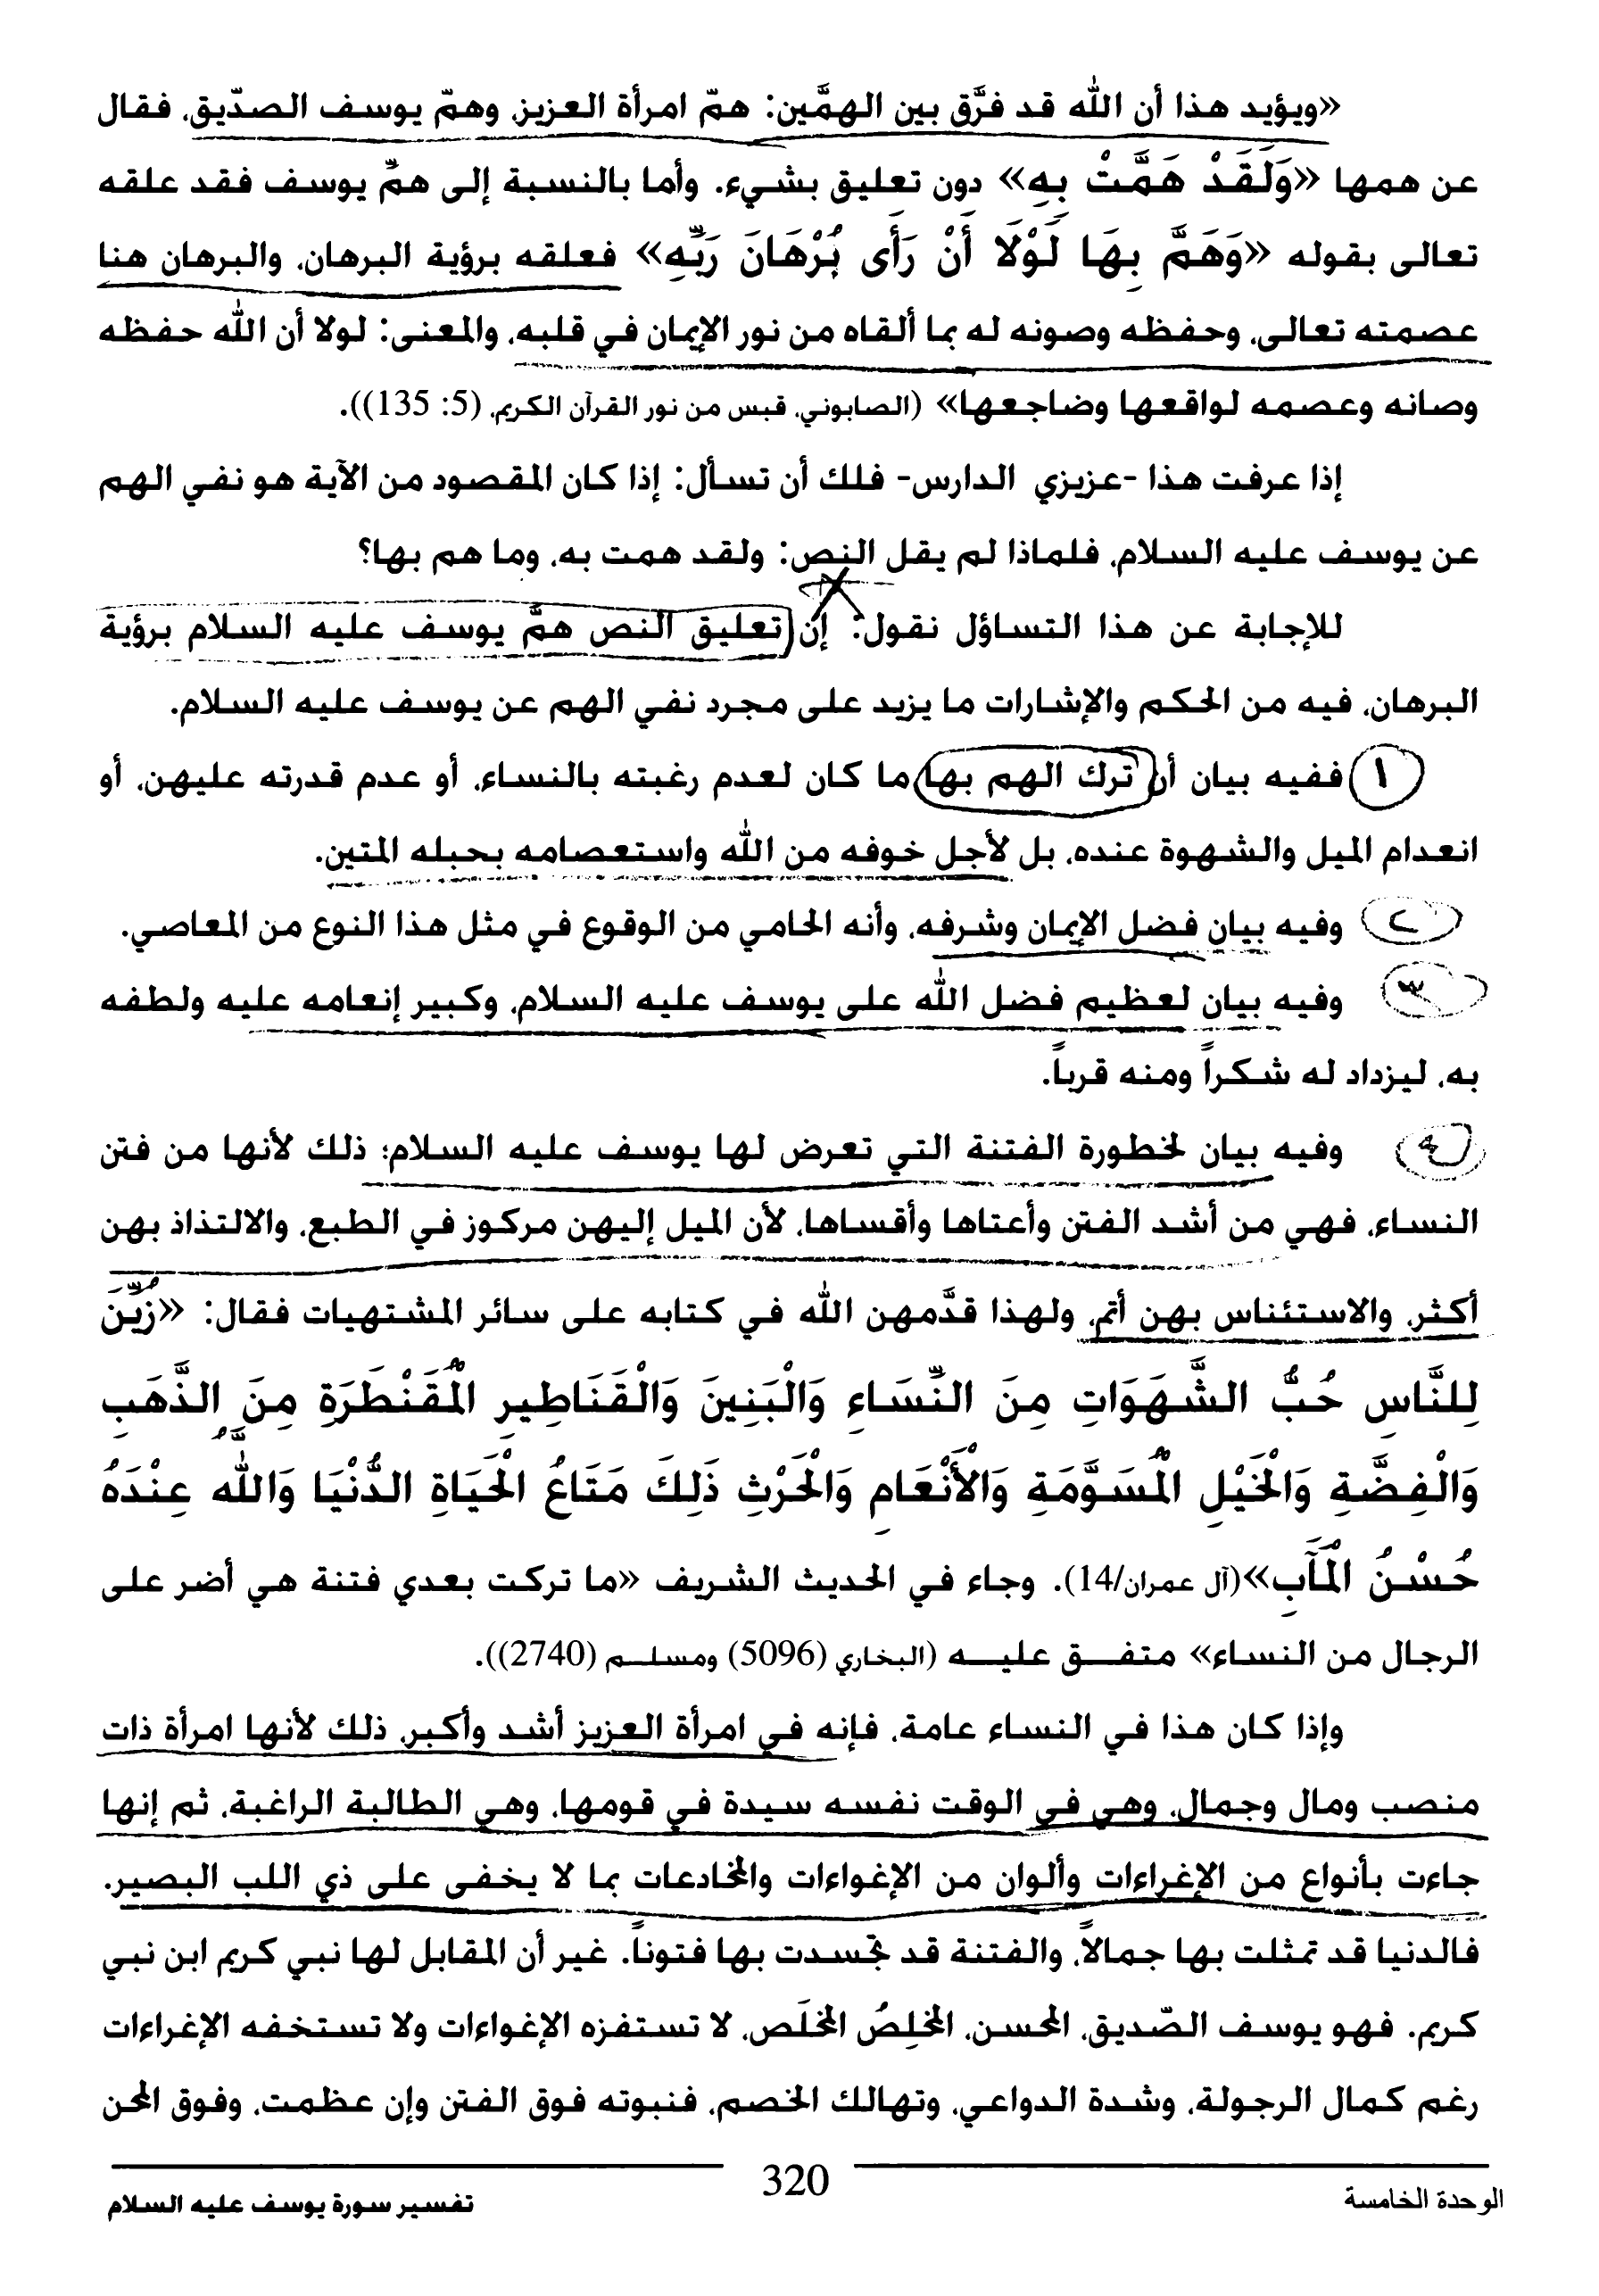 «ويؤيد هذا أن الله قد فرَّق بين الهمَّين: همّ امرأة العزيز، وهمّ يوسف الصدّيق، فقال
عن همها «وَلَقَدْ هَمَّتْ بِهِ» دون تعليق بشيء. وأما بالنسبة إلى همِّ يوسف فقد علقه
تعالى بقوله «وَهَمَّ بِهَا لَوْلَا أَنْ رَأَى بُرْهَانَ رَبِّهِ» فعلقه برؤية البرهان، والبرهان هنا
عصمته تعالى، وحفظه وصونه له بما ألقاه من نور الإيمان في قلبه، والمعنى: لولا أن الله حفظه
وصانه وعصمه لواقعها وضاجعها» (الصابوني، قبس من نور القرآن الكريم، (5: 135)).
إذا عرفت هذا -عزيزي الدارس- فلك أن تسأل: إذا كان المقصود من الآية هو نفي الهم
عن يوسف عليه السلام، فلماذا لم يقل النص: ولقد همت به، وما هم بها؟
للإجابة عن هذا التساؤل نقول: إن تعليق النص همَّ يوسف عليه السلام برؤية
البرهان، فيه من الحكم والإشارات ما يزيد على مجرد نفي الهم عن يوسف عليه السلام.
١ ففيه بيان أن ترك الهم بها ما كان لعدم رغبته بالنساء، أو عدم قدرته عليهن، أو
انعدام الميل والشهوة عنده، بل لأجل خوفه من الله واستعصامه بحبله المتين.
٢ وفيه بيان فضل الإيمان وشرفه، وأنه الحامي من الوقوع في مثل هذا النوع من المعاصي.
٣ وفيه بيان لعظيم فضل الله على يوسف عليه السلام، وكبير إنعامه عليه ولطفه
به، ليزداد له شكراً ومنه قرباً.
٤ وفيه بيان لخطورة الفتنة التي تعرض لها يوسف عليه السلام؛ ذلك لأنها من فتن
النساء، فهي من أشد الفتن وأعتاها وأقساها، لأن الميل إليهن مركوز في الطبع، والالتذاذ بهن
أكثر، والاستئناس بهن أتم، ولهذا قدَّمهن الله في كتابه على سائر المشتهيات فقال: «زُيِّنَ
لِلنَّاسِ حُبُّ الشَّهَوَاتِ مِنَ النِّسَاءِ وَالْبَنِينَ وَالْقَنَاطِيرِ الْمُقَنْطَرَةِ مِنَ الذَّهَبِ
وَالْفِضَّةِ وَالْخَيْلِ الْمُسَوَّمَةِ وَالْأَنْعَامِ وَالْحَرْثِ ذَلِكَ مَتَاعُ الْحَيَاةِ الدُّنْيَا وَاللَّهُ عِنْدَهُ
حُسْنُ الْمَآبِ»(آل عمران/14). وجاء في الحديث الشريف «ما تركت بعدي فتنة هي أضر على
الرجال من النساء» متفق عليه (البخاري (5096) ومسلم (2740)).
وإذا كان هذا في النساء عامة، فإنه في امرأة العزيز أشد وأكبر، ذلك لأنها امرأة ذات
منصب ومال وجمال، وهي في الوقت نفسه سيدة في قومها، وهي الطالبة الراغبة، ثم إنها
جاءت بأنواع من الإغراءات وألوان من الإغواءات والمخادعات بما لا يخفى على ذي اللب البصير.
فالدنيا قد تمثلت بها جمالاً، والفتنة قد تجسدت بها فتوناً. غير أن المقابل لها نبي كريم ابن نبي
كريم. فهو يوسف الصّديق، المحسن، المخلِصُ المخلَص، لا تستفزه الإغواءات ولا تستخفه الإغراءات
رغم كمال الرجولة، وشدة الدواعي، وتهالك الخصم، فنبوته فوق الفتن وإن عظمت، وفوق المحن
الوحدة الخامسة
320
تفسير سورة يوسف عليه السلام